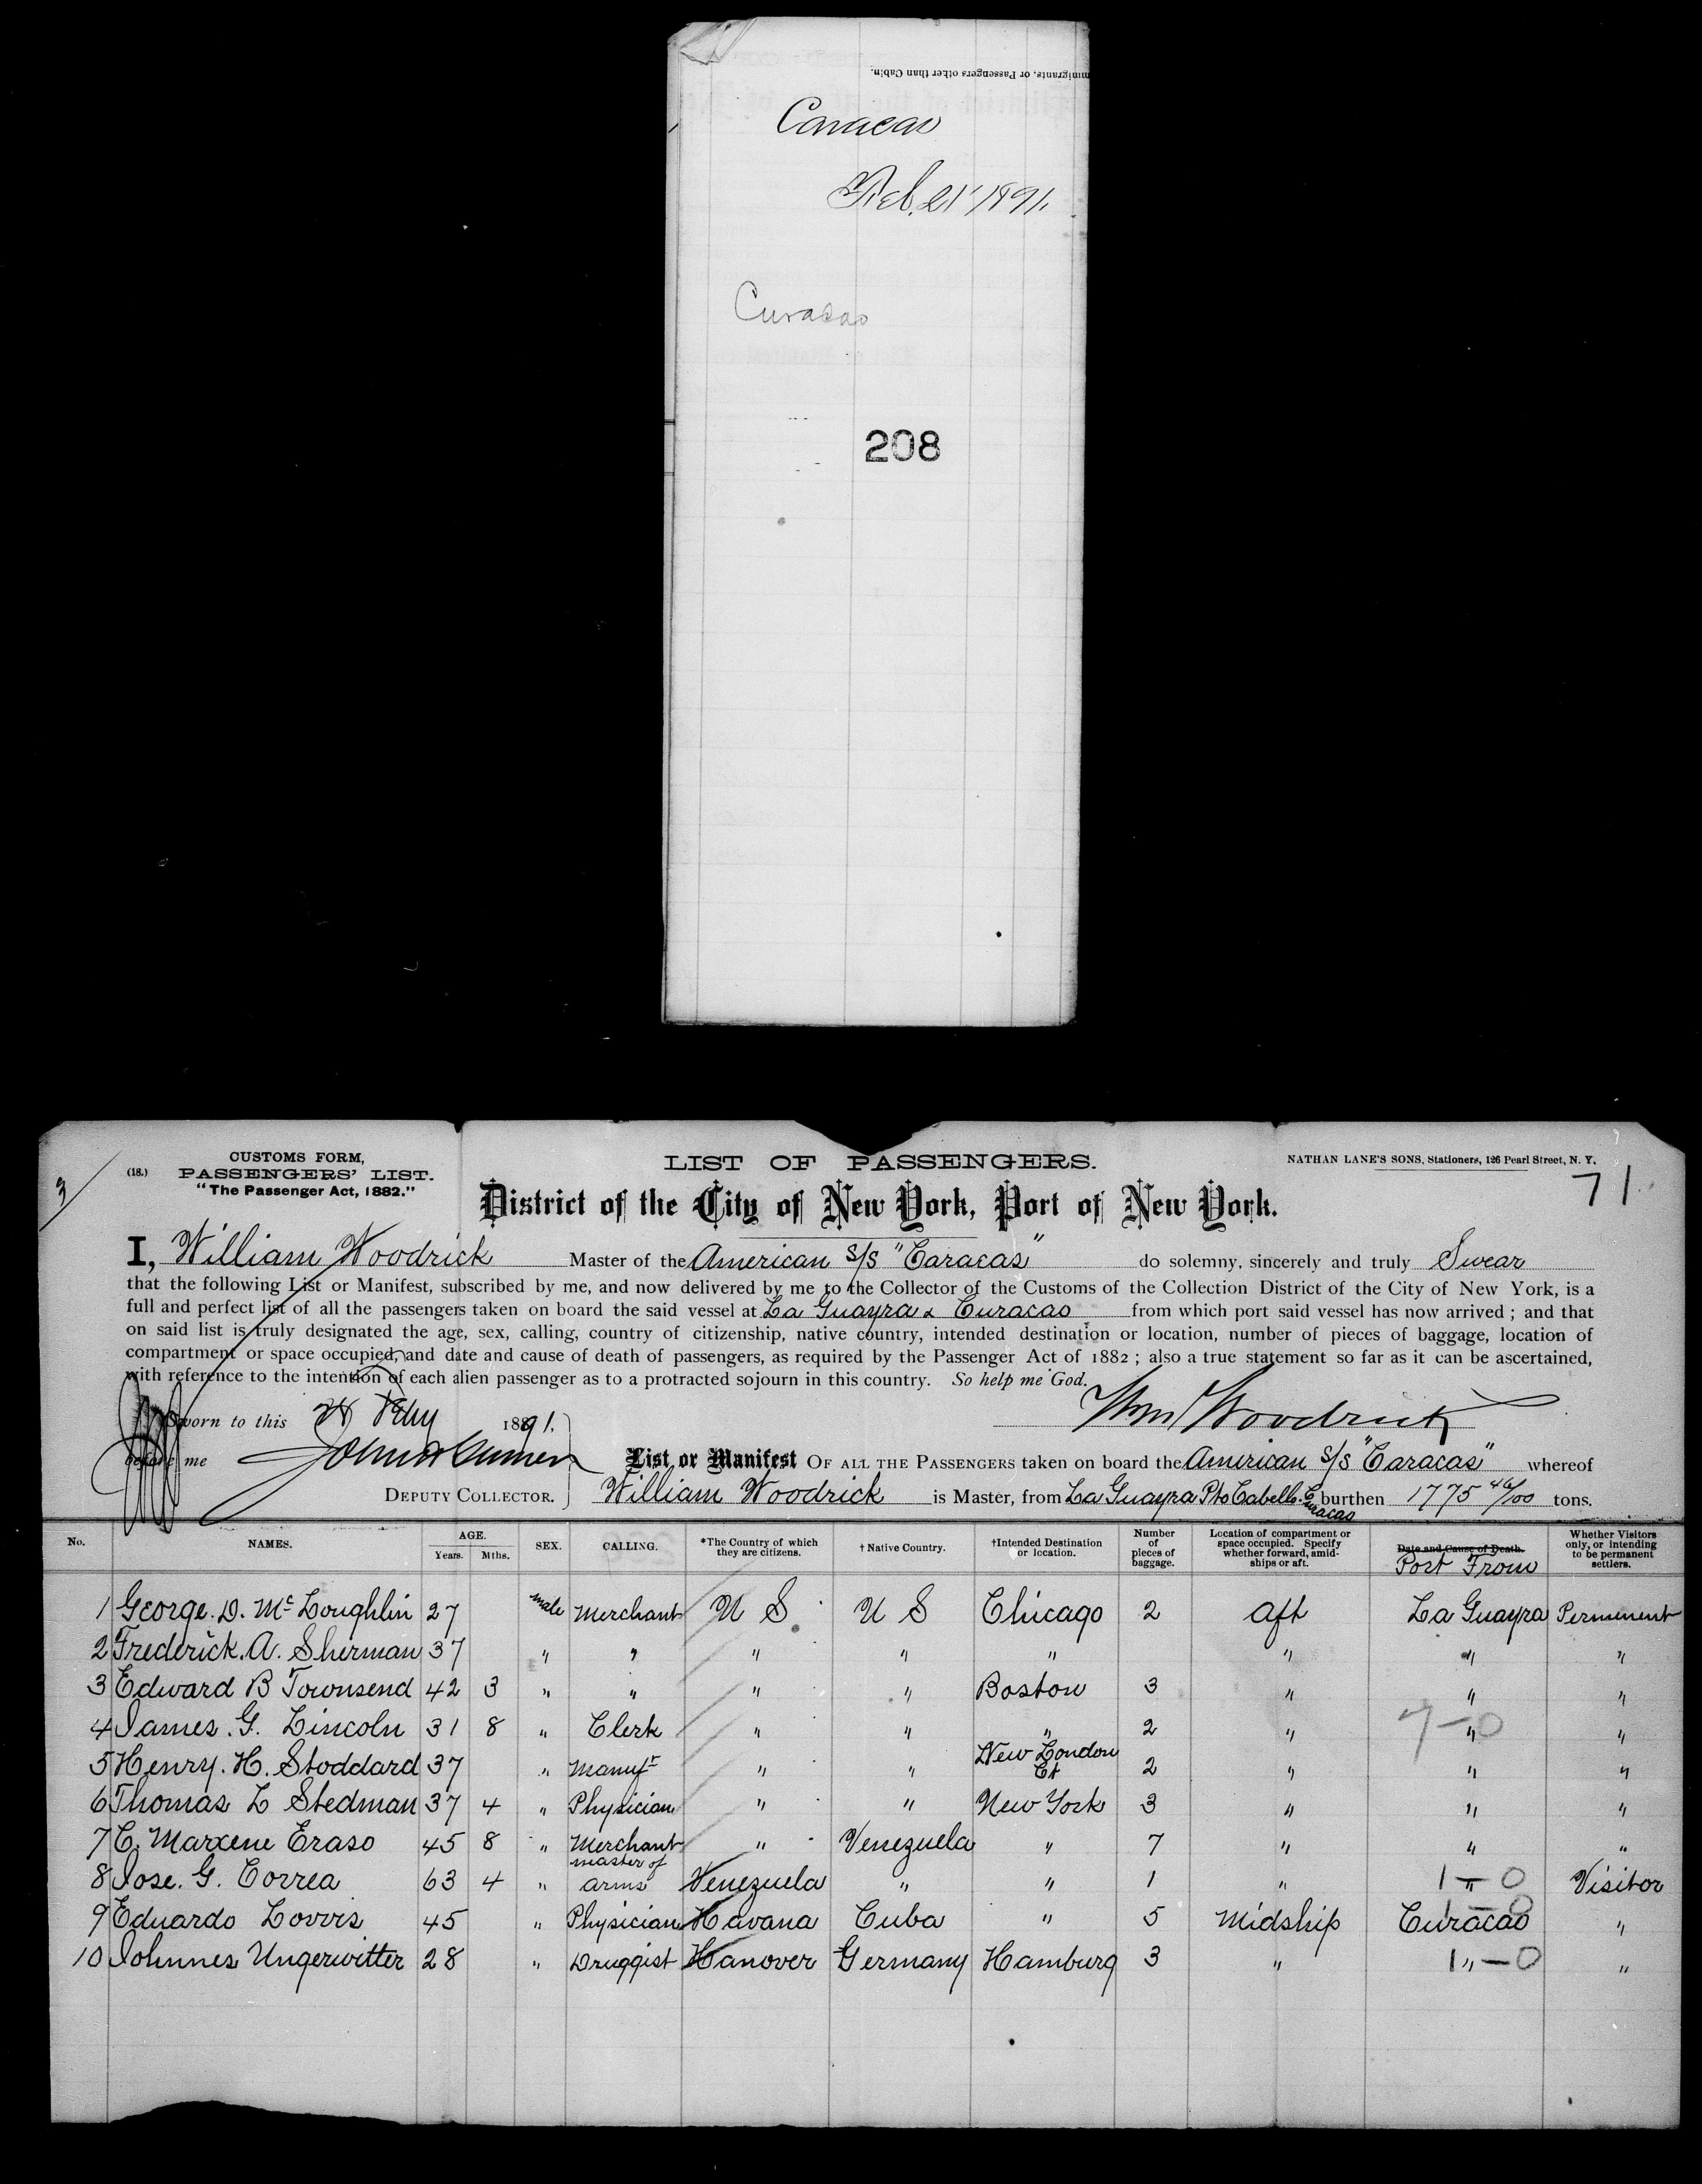 mmigrants, or Passengers other than Cabin.
Caracas
Feb. 21' 1891.
Curacao
208
3
(18.)
CUSTOMS FORM,
PASSENGERS' LIST.
"The Passenger Act, 1882."
LIST OF PASSENGERS.
NATHAN LANE'S SONS, Stationers, 126 Pearl Street, N. Y.
71
District of the City of New York, Port of New York.
I, William Woodrick Master of the American S/S "Caracas" do solemny, sincerely and truly Swear
that the following List or Manifest, subscribed by me, and now delivered by me to the Collector of the Customs of the Collection District of the City of New York, is a
full and perfect list of all the passengers taken on board the said vessel at La Guayra & Curacao from which port said vessel has now arrived; and that
on said list is truly designated the age, sex, calling, country of citizenship, native country, intended destination or location, number of pieces of baggage, location of
compartment or space occupied, and date and cause of death of passengers, as required by the Passenger Act of 1882; also a true statement so far as it can be ascertained,
with reference to the intention of each alien passenger as to a protracted sojourn in this country. So help me God.
Sworn to this Feby 1891.
Wm Woodrick
before me
List or Manifest OF ALL THE PASSENGERS taken on board the American S/S "Caracas" whereof
DEPUTY COLLECTOR. William Woodrick is Master, from La Guayra Pto Cabello. Curacao burthen 1775 46/100 tons.
No. NAMES. AGE. Years. Mths. SEX. CALLING. *The Country of which they are citizens. † Native Country. †Intended Destination or location. Number of pieces of baggage. Location of compartment or space occupied. Specify whether forward, amidships or aft. Date and Cause of Death. Port From Whether Visitors only, or intending to be permanent settlers.
1 George. D. Mc Loughlin 27 male Merchant U S U S Chicago 2 Aft La Guayra Permenent
2 Frederick. A. Sherman 37 " " " " " " " "
3 Edward B Townsend 42 3 " " " " Boston 3 " " "
4 James. G. Lincoln 31 8 " Clerk " " " 2 " " 7-0 "
5 Henry. H. Stoddard 37 " Manufr " " New London Ct 2 " " "
6 Thomas L Stedman 37 4 " Physician " " New York 3 " " "
7 C. Marxene Eraso 45 8 " Merchant " Venezuela " 7 " " "
8 Jose. G. Correa 63 4 " master of arms Venezuela " " 1 " " 1-0 Visitor
9 Eduardo Lovvis 45 " Physician Havana Cuba " 5 Midship Curacao 1-0 "
10 Johnnes Ungerwitter 28 " Druggist Hanover Germany Hamburg 3 " " 1-0 "